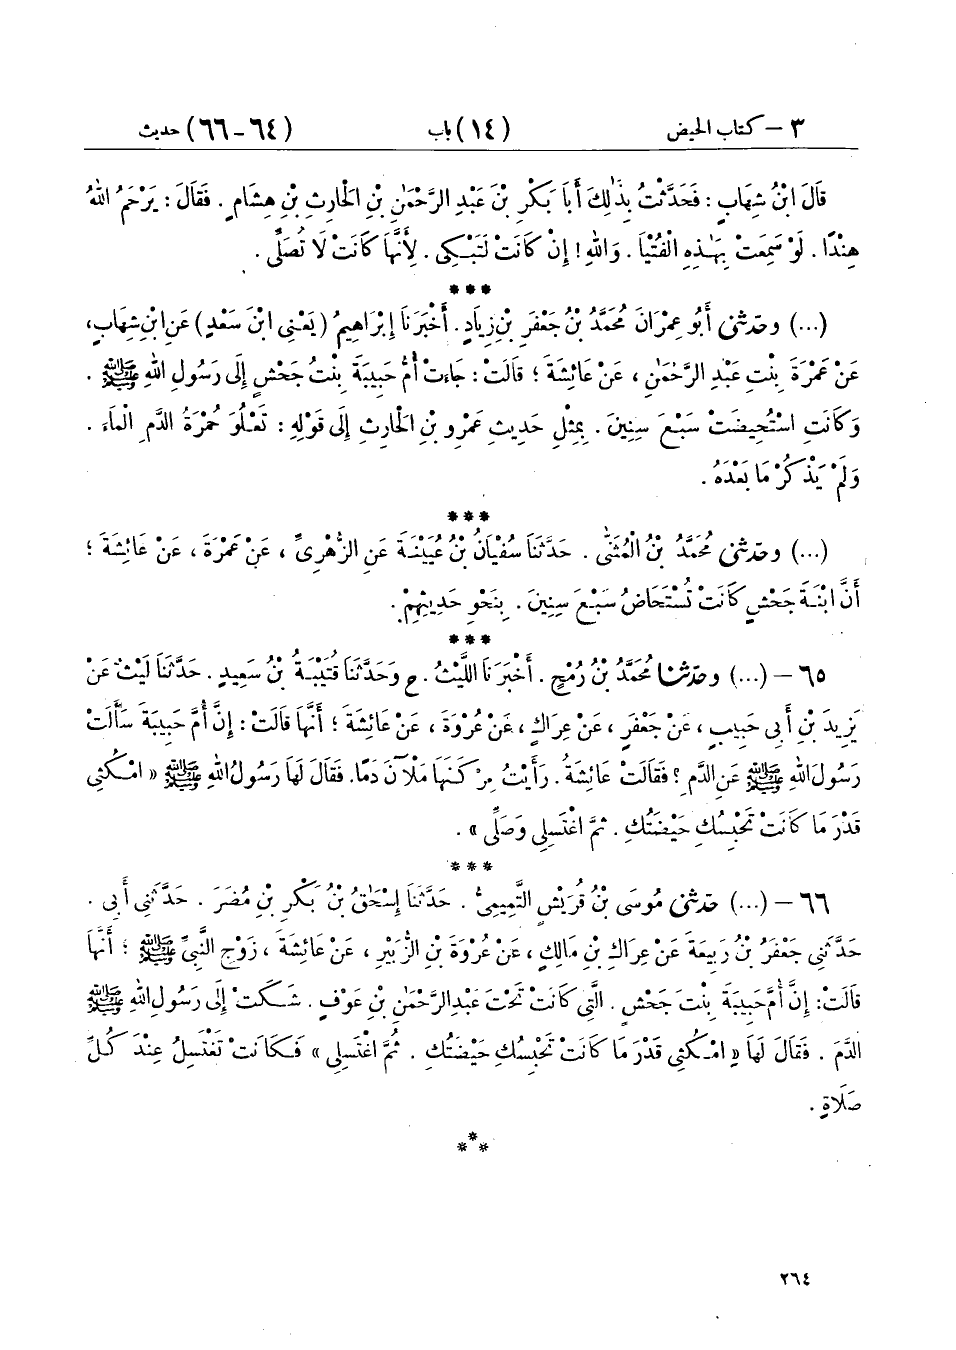 ٣ – كتاب الحيض (١٤) باب (٦٤ – ٦٦) حديث
قَالَ ابْنُ شِهَابٍ : فَحَدَّثْتُ بِذَٰلِكَ أَبَا بَكْرِ بْنَ عَبْدِ الرَّحْمَٰنِ بْنِ الْحَارِثِ بْنِ هِشَامٍ . فَقَالَ : يَرْحَمُ اللهُ
هِنْدًا . لَوْ سَمِعَتْ بِهَٰذِهِ الْفُتْيَا . وَاللهِ ! إِنْ كَانَتْ لَتَبْكِي . لِأَنَّهَا كَانَتْ لَا تُصَلِّي .
***
(...) وحَدَّثَنِي أَبُو عِمْرَانَ مُحَمَّدُ بْنُ جَعْفَرِ بْنِ زِيَادٍ . أَخْبَرَنَا إِبْرَاهِيمُ (يَعْنِي ابْنَ سَعْدٍ) عَنِ ابْنِ شِهَابٍ،
عَنْ عَمْرَةَ بِنْتِ عَبْدِ الرَّحْمَٰنِ ، عَنْ عَائِشَةَ ؛ قَالَتْ : جَاءَتْ أُمُّ حَبِيبَةَ بِنْتُ جَحْشٍ إِلَى رَسُولِ اللهِ ﷺ .
وَكَانَتِ اسْتُحِيضَتْ سَبْعَ سِنِينَ . بِمِثْلِ حَدِيثِ عَمْرِو بْنِ الْحَارِثِ إِلَى قَوْلِهِ : تَعْلُوَ حُمْرَةُ الدَّمِ الْمَاءَ .
وَلَمْ يَذْكُرْ مَا بَعْدَهُ .
***
(...) وحَدَّثَنِي مُحَمَّدُ بْنُ الْمُثَنَّى . حَدَّثَنَا سُفْيَانُ بْنُ عُيَيْنَةَ عَنِ الزُّهْرِيِّ ، عَنْ عَمْرَةَ ، عَنْ عَائِشَةَ ؛
أَنَّ ابْنَةَ جَحْشٍ كَانَتْ تُسْتَحَاضُ سَبْعَ سِنِينَ . بِنَحْوِ حَدِيثِهِمْ .
***
٦٥ – (...) وحَدَّثَنَا مُحَمَّدُ بْنُ رُمْحٍ . أَخْبَرَنَا اللَّيْثُ . ح وَحَدَّثَنَا قُتَيْبَةُ بْنُ سَعِيدٍ . حَدَّثَنَا لَيْثٌ عَنْ
يَزِيدَ بْنِ أَبِي حَبِيبٍ ، عَنْ جَعْفَرٍ ، عَنْ عِرَاكٍ ، عَنْ عُرْوَةَ ، عَنْ عَائِشَةَ ؛ أَنَّهَا قَالَتْ : إِنَّ أُمَّ حَبِيبَةَ سَأَلَتْ
رَسُولَ اللهِ ﷺ عَنِ الدَّمِ ؟ فَقَالَتْ عَائِشَةُ . رَأَيْتُ مِرْكَنَهَا مَلْآنَ دَمًا. فَقَالَ لَهَا رَسُولُ اللهِ ﷺ « امْكُثِي
قَدْرَ مَا كَانَتْ تَحْبِسُكِ حَيْضَتُكِ . ثُمَّ اغْتَسِلِي وَصَلِّي » .
***
٦٦ – (...) حَدَّثَنِي مُوسَى بْنُ قُرَيْشٍ التَّمِيمِيُّ . حَدَّثَنَا إِسْحَٰقُ بْنُ بَكْرِ بْنِ مُضَرَ . حَدَّثَنِي أَبِي .
حَدَّثَنِي جَعْفَرُ بْنُ رَبِيعَةَ عَنْ عِرَاكِ بْنِ مَالِكٍ ، عَنْ عُرْوَةَ بْنِ الزُّبَيْرِ ، عَنْ عَائِشَةَ ، زَوْجِ النَّبِيِّ ﷺ ؛ أَنَّهَا
قَالَتْ : إِنَّ أُمَّ حَبِيبَةَ بِنْتَ جَحْشٍ . الَّتِي كَانَتْ تَحْتَ عَبْدِ الرَّحْمَٰنِ بْنِ عَوْفٍ . شَكَتْ إِلَى رَسُولِ اللهِ ﷺ
الدَّمَ . فَقَالَ لَهَا « امْكُثِي قَدْرَ مَا كَانَتْ تَحْبِسُكِ حَيْضَتُكِ . ثُمَّ اغْتَسِلِي » فَكَانَتْ تَغْتَسِلُ عِنْدَ كُلِّ
صَلَاةٍ .
***
٢٦٤